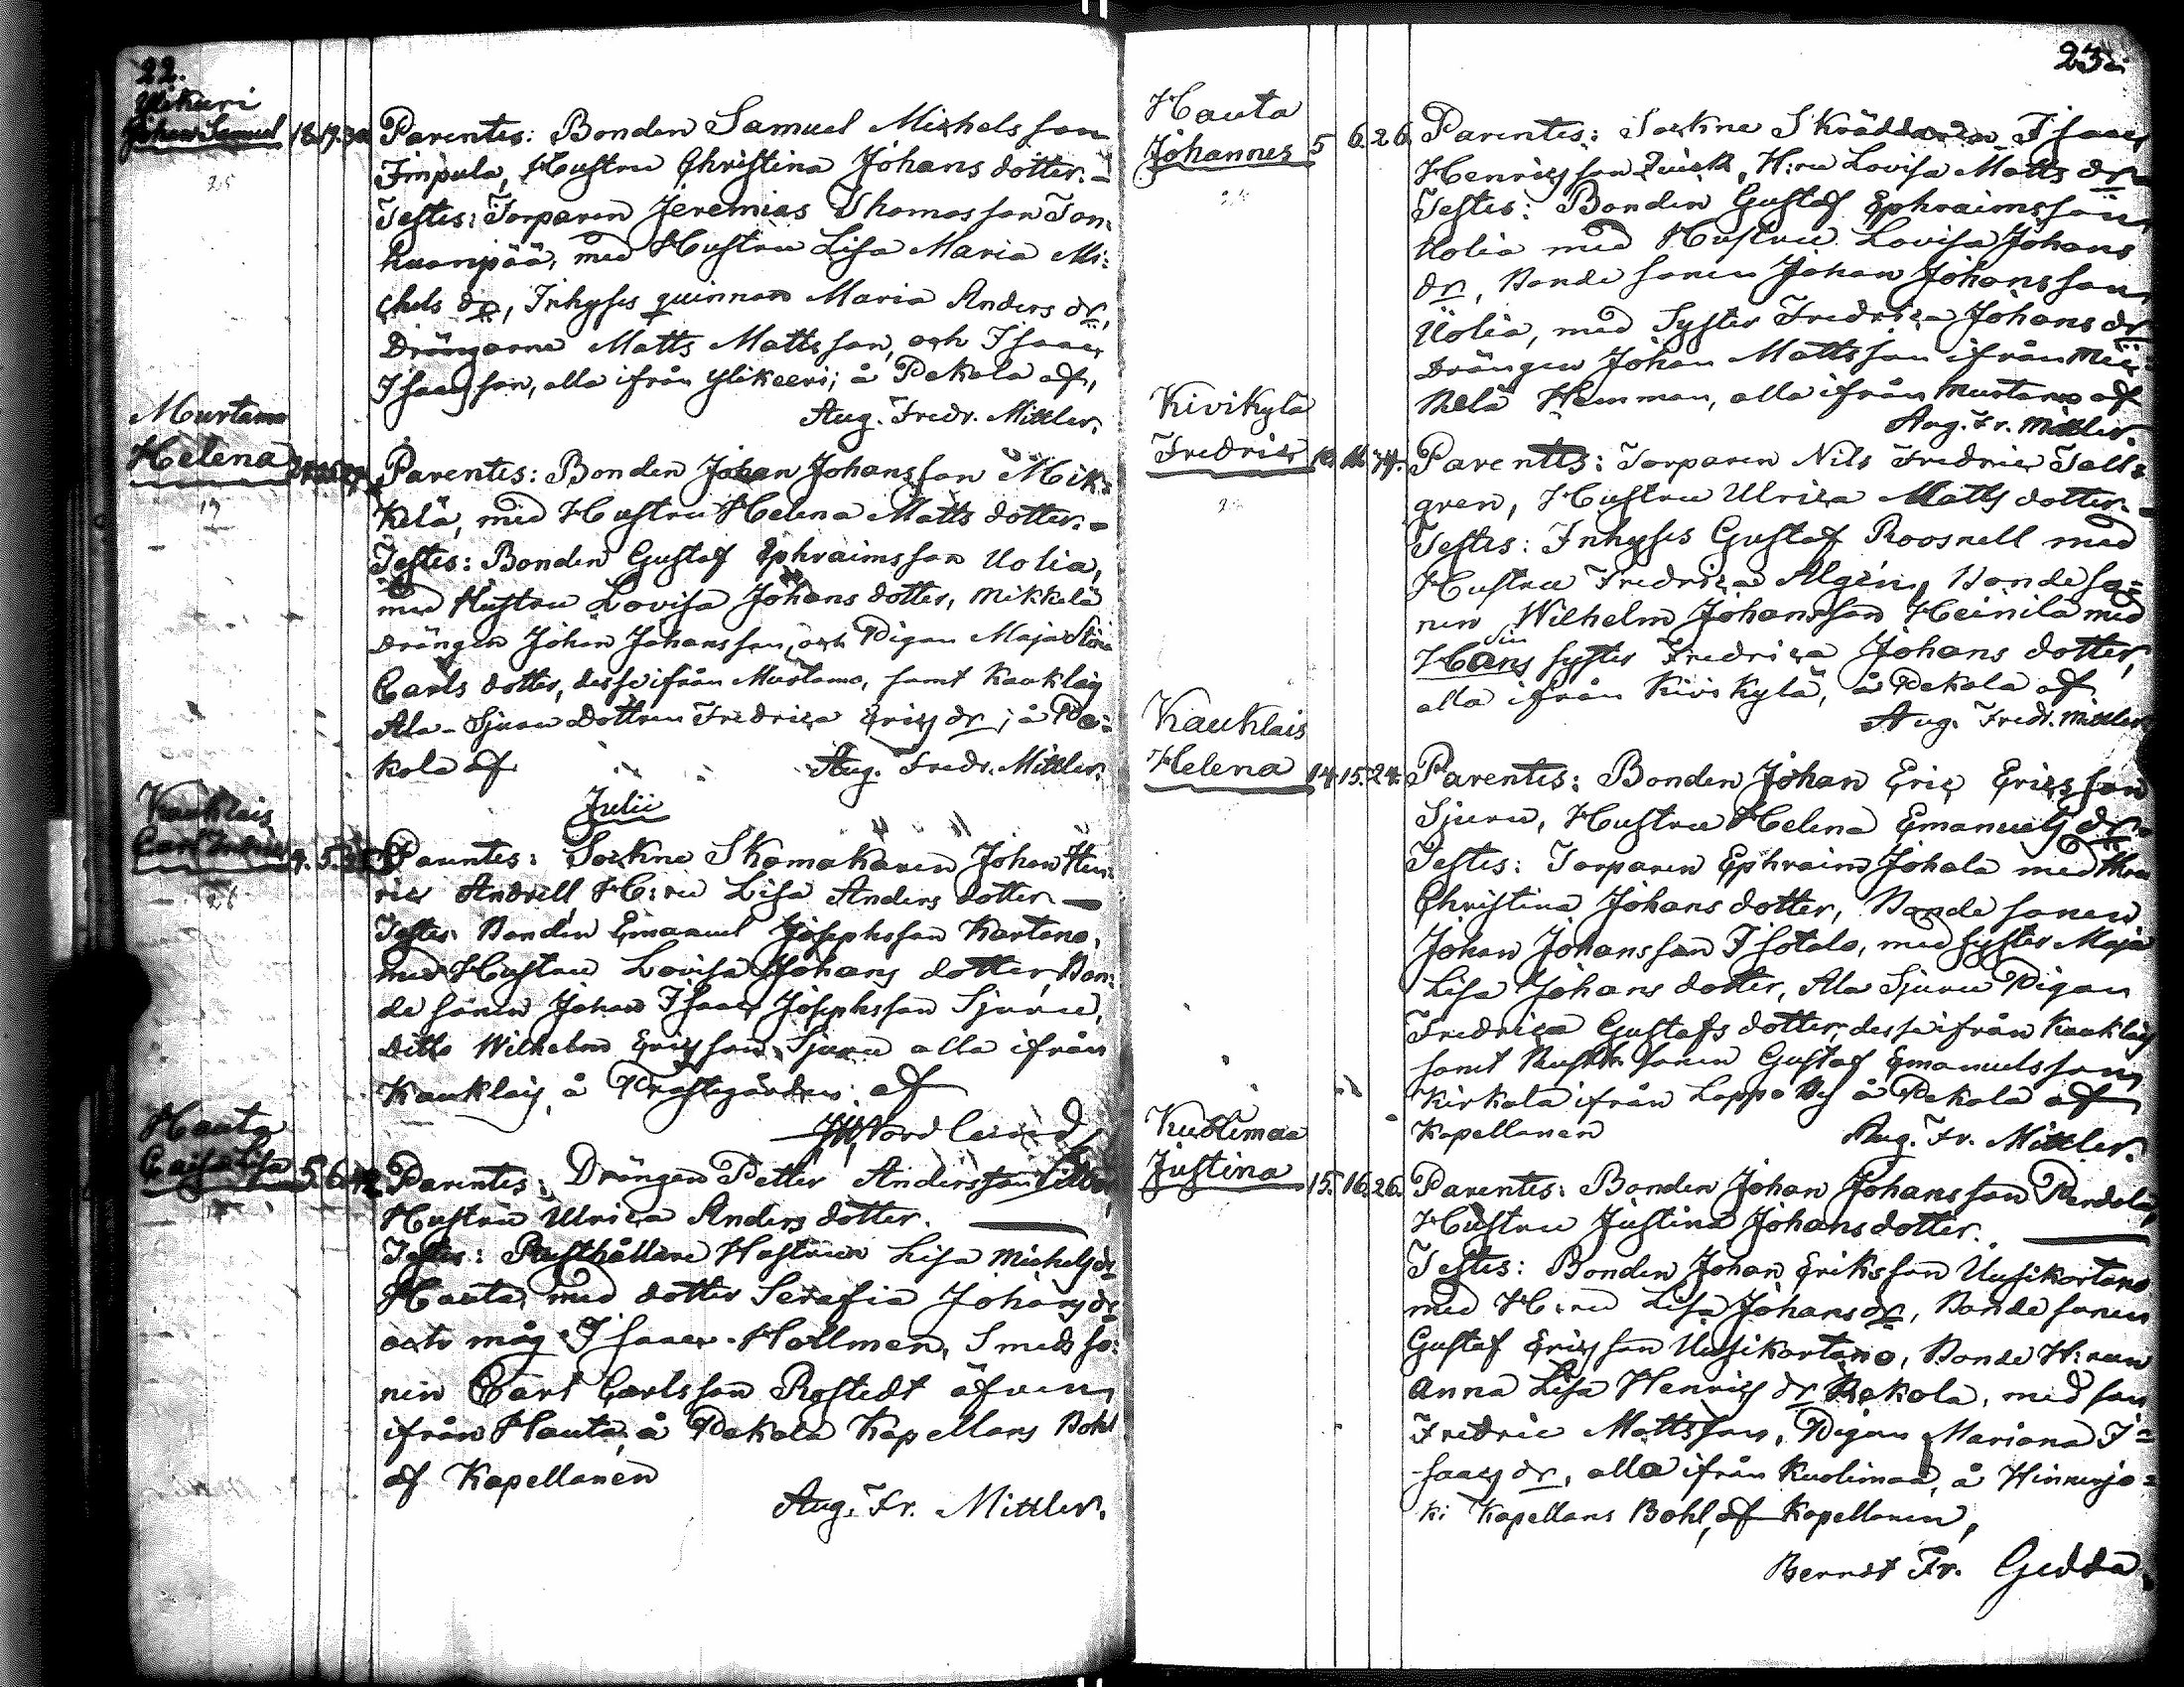 22.
Ylikeeri
Johan Samuel 18. 19. 30.
Parentes: Bonden Samuel Michelsson
Impola, Hustru Christina Johans dotter. -
Testes: Torparen Jeremias Thomasson Tom-
kuonpää, med Hustru Lisa Maria Mi-
chels dr, Inhyses quinnan Maria Anders dr,
Drängarne Matts Mattsson, och Isaac
Isaacsson, alla ifrån Ylikeeri; å Pekola af,
Aug. Fredr. Mittler.
Murtamo
Helena
Parentes: Bonden Johan Johansson Mik-
kelä, med Hustru Helena Matts dotter. -
Testes: Bonden Gustaf Ephraimsson Uolia,
med Hustru Lovisa Johans dotter, Mikkelä
Drängen Johan Johansson, och Pigan Maja Stina
Carls dotter, desse ifrån Murtamo, samt Kauklais
Ala-Sjuru Dottren Fredrica Erics dr; å Pe-
kola af Aug. Fredr. Mittler.
Julii
Kauklais
Carl Fredric 4. 5.
Parentes: Sockne Skomakaren Johan Hen-
ric Andrell H:ru Lisa Anders dotter
Testes: Bonden Emanuel Josephsson Kartano,
med Hustru Lovisa Johans dotter, Bon-
de sonen Johan Isaac Josephsson Sjuru,
ditto Wilhelm Ericsson Sjuru alla ifrån
Kauklais, å Prostegården af
Nordlund
Hauta
Caisa Lisa 5. 6. 42.
Parentes: Drängen Petter Andersson
Hustru Ulrica Anders dotter.
Testes: Rusthållare Hustrun Lisa Michels dr
Hauta, med dotter Serafia Johans dr
och måg Isaac Hollmen, Smeds so-
nen Carl Carlsson Rostedt äfven
ifrån Hauta, å Pekola Kapellans Bohl
af Kapellanen
Aug. Fr. Mittler.
23.
Hauta
Johannes 5 6. 26.
Parentes: Sockne Skräddaren Isaac
Henricsson Quick, H:ru Lovisa Matts dr
Testes: Bonden Gustaf Ephraimsson
Uolia med Hustru Lovisa Johans
dr, Bonde sonen Johan Johansson
Uolia, med Syster Fredrica Johans dr
Drängen Johan Mattsson ifrån Mik-
kelä Hemman, alla ifrån Murtamo af
Aug. Fr. Mittler.
Kivikylä
Fredric 10. 11.
Parentes: Torparen Nils Fredric Tall-
gren, Hustru Ulrica Matts dotter. -
Testes: Inhyses Gustaf Roosnell med
Hustru Fredrica Algén, Bonde so-
nen Wilhelm Johansson Heinilä med
sin
Hans syster Fredrica Johans dotter,
alla ifrån Kivikylä, å Pekola af
Aug. Fredr. Mittler
Kauklais
Helena 14. 15. 24.
Parentes: Bonden Johan Eric Ericsson
Sjuru, Hustru Helena Emanuels dr
Testes: Torparen Ephraim Johola med Hru
Christina Johans dotter, Bonde sonen
Johan Johansson Isotalo, med syster Maja
Lisa Johans dotter, Ala Sjuru Pigan
Fredrica Gustafs dotter, desse ifrån Kauklais
samt Rusth. sonen Gustaf Emanuelsson
Kirkola ifrån Lappo By å Pekola af
Kapellanen Aug. Fr. Mittler.
Kuolimaa
Justina 15. 16. 26.
Parentes: Bonden Johan Johansson Perdola,
Hustru Justina Johansdotter.
Testes: Bonden Johan Eriksson Uusikartano
med H:ru Lisa Johans dr, Bonde sonen
Gustaf Ericsson Uusikartano, Bonde H:run
Anna Lisa Henrics dr Rekola, med son
Fredric Mattsson, Pigan Mariana I-
saacs dr, alla ifrån Kuolimaa, å Hinnerjo-
ki Kapellans Bohl, af Kapellanen,
Berndt Fr. Gedda